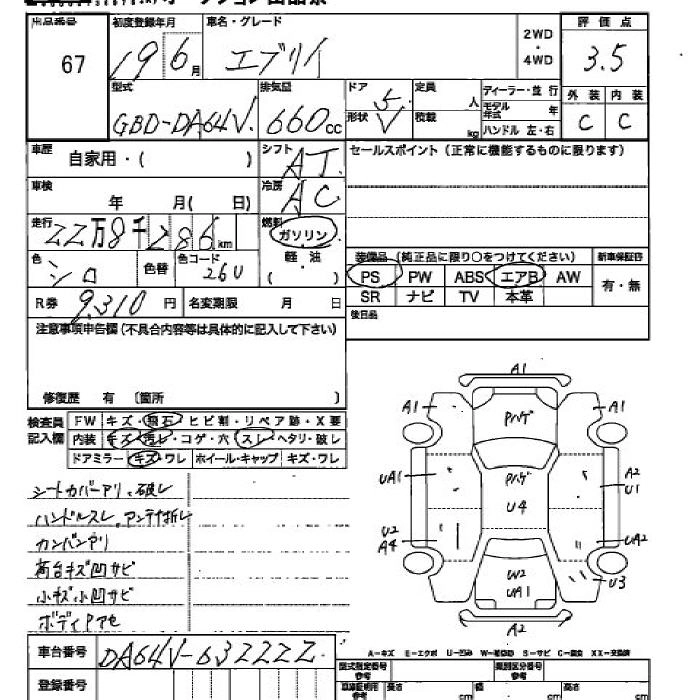 出品番号
67
初度登録年月
19 6月
車名・グレード
エブリイ
2WD
・
4WD
評価点
3.5
型式
GBD-DA64V
排気量
660cc
ドア
5
形状
V
定員
人
積載
kg
ディーラー・並行
モデル年式 年
ハンドル 左・右
外装 内装
C C
車歴
自家用・( )
シフト
AT
セールスポイント (正常に機能するものに限ります)
車検
年 月( 日)
冷房
AC
走行
22万8千286km
燃料
ガソリン
軽・油
( )
色
シロ
色替
色コード
26U
装備品 (純正品に限り○をつけてください)
新車保証書
PS PW ABS エアB AW
有・無
SR ナビ TV 本革
R券 9,310円
名変期限 月 日
後日品
注意事項申告欄(不具合内容等は具体的に記入して下さい)
修復歴 有 〔箇所 〕
検査員
記入欄
FW キズ・飛石・ヒビ割・リペア跡・X要
内装 キズ・汚レ・コゲ・穴・スレ・ヘタリ・破レ
ドアミラー キズ・ワレ ホイール・キャップ キズ・ワレ
シートカバーアリ、破レ
ハンドルスレ、アンテナ折レ
カンバンアリ
荷台キズ凹サビ
小キズ小凹サビ
ボディアセ
A1
A1
A1
Pハゲ
Pハゲ
UA1
A2
U1
U4
U2
A4
UA2
W2
UA1
U3
A2
A-キズ E-エクボ U-凹み W-補修跡 S-サビ C-腐食 XX-交換済
車台番号
DA64V-63ZZZZ
登録番号
型式指定番号
参考
類別区分番号
参考
車庫証明用
参考
長さ
cm
幅
cm
高さ
cm